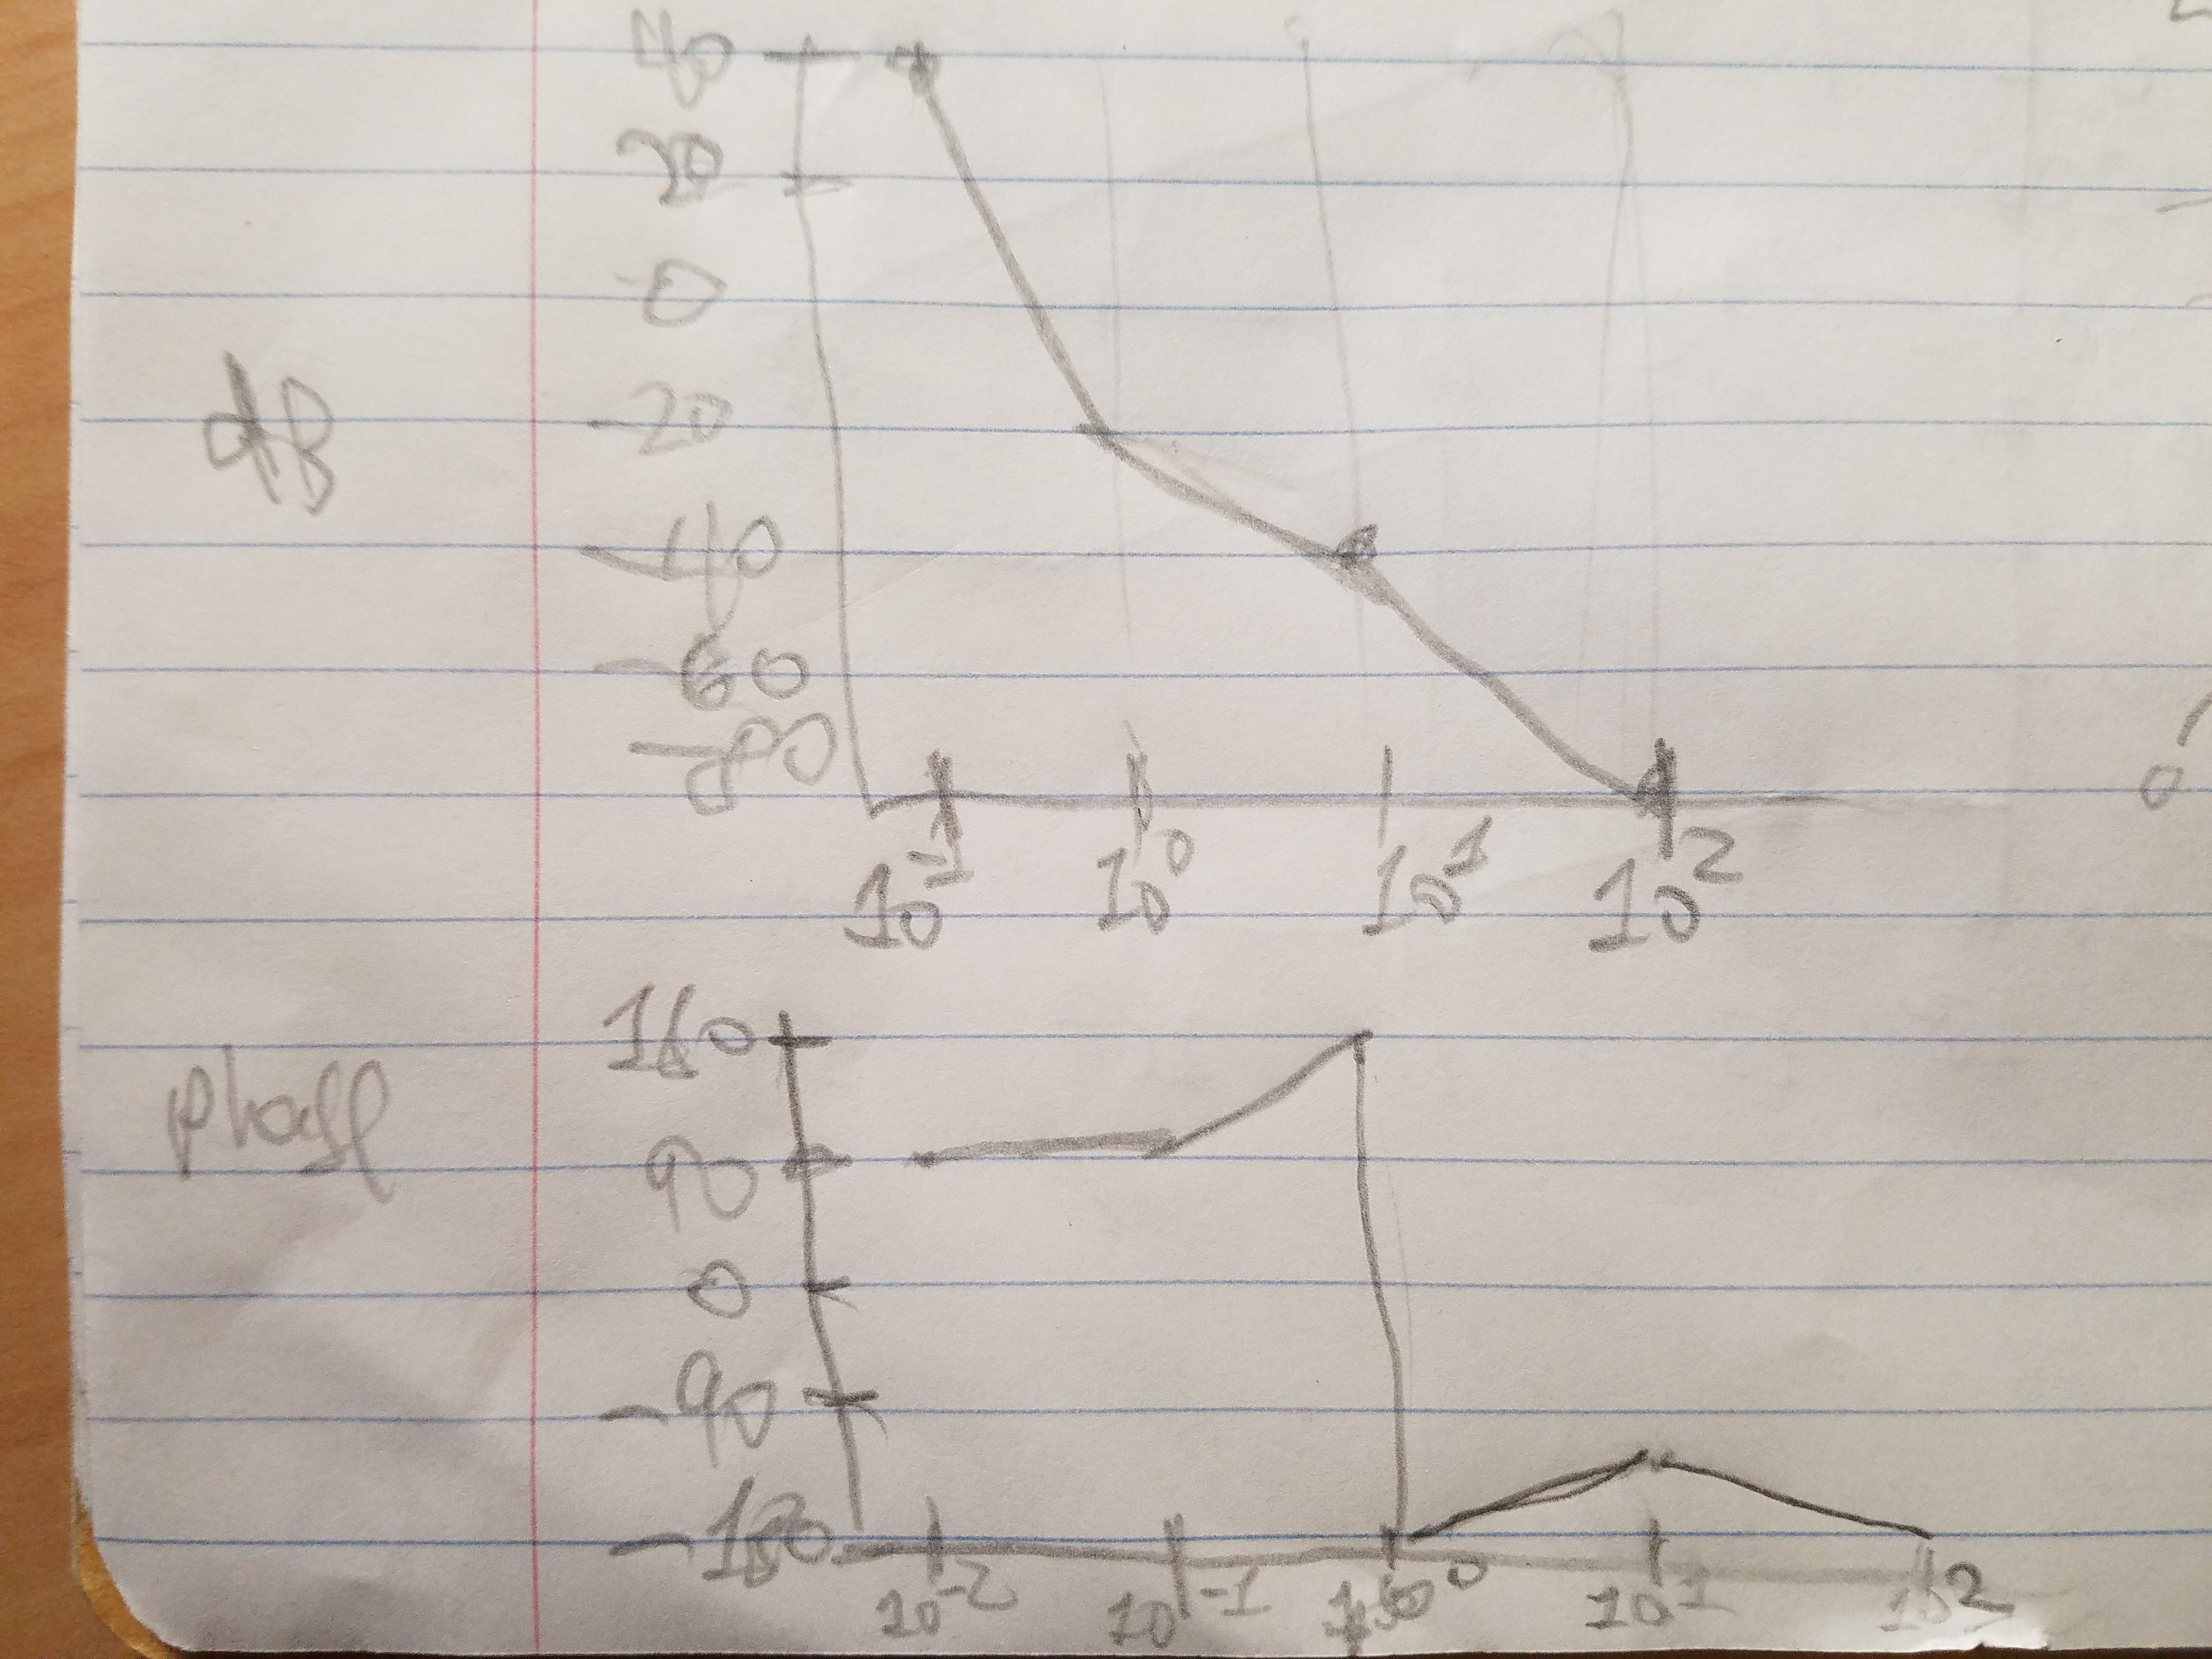 40
20
0
dB
-20
-40
-60
-80
10^-1 10^0 10^1 10^2
180
phase
90
0
-90
-180
10^-2 10^-1 10^0 10^1 10^2